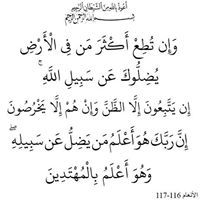 أعوذ بالله من الشيطان الرجيم
بسم الله الرحمن الرحيم
وَإِن تُطِعْ أَكْثَرَ مَن فِى الْأَرْضِ
يُضِلُّوكَ عَن سَبِيلِ اللَّهِ ۚ
إِن يَتَّبِعُونَ إِلَّا الظَّنَّ وَإِنْ هُمْ إِلَّا يَخْرُصُونَ
إِنَّ رَبَّكَ هُوَ أَعْلَمُ مَن يَضِلُّ عَن سَبِيلِهِ ۖ
وَهُوَ أَعْلَمُ بِالْمُهْتَدِينَ
الأنعام 116-117